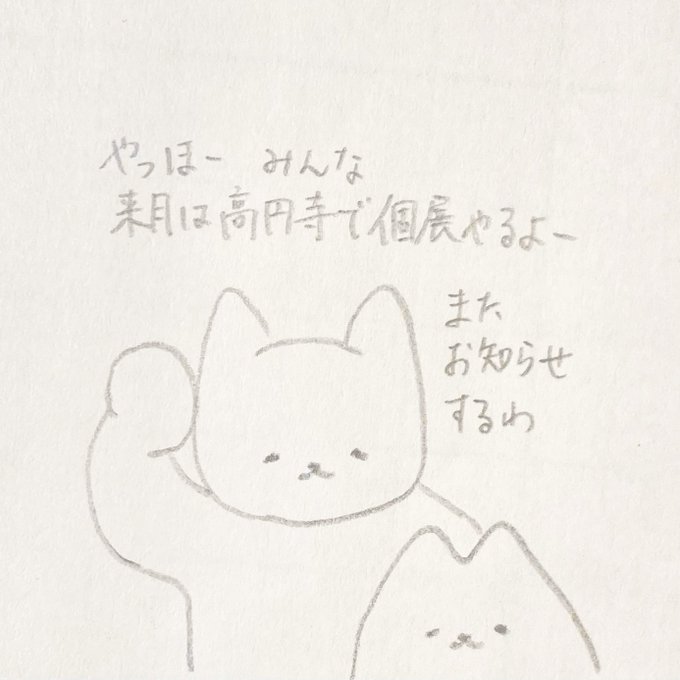 やっほー みんな
来月は高円寺で個展やるよー
また
お知らせ
するわ